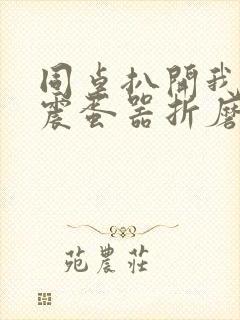 同桌扒開我
震蛋器折磨
苑農莊